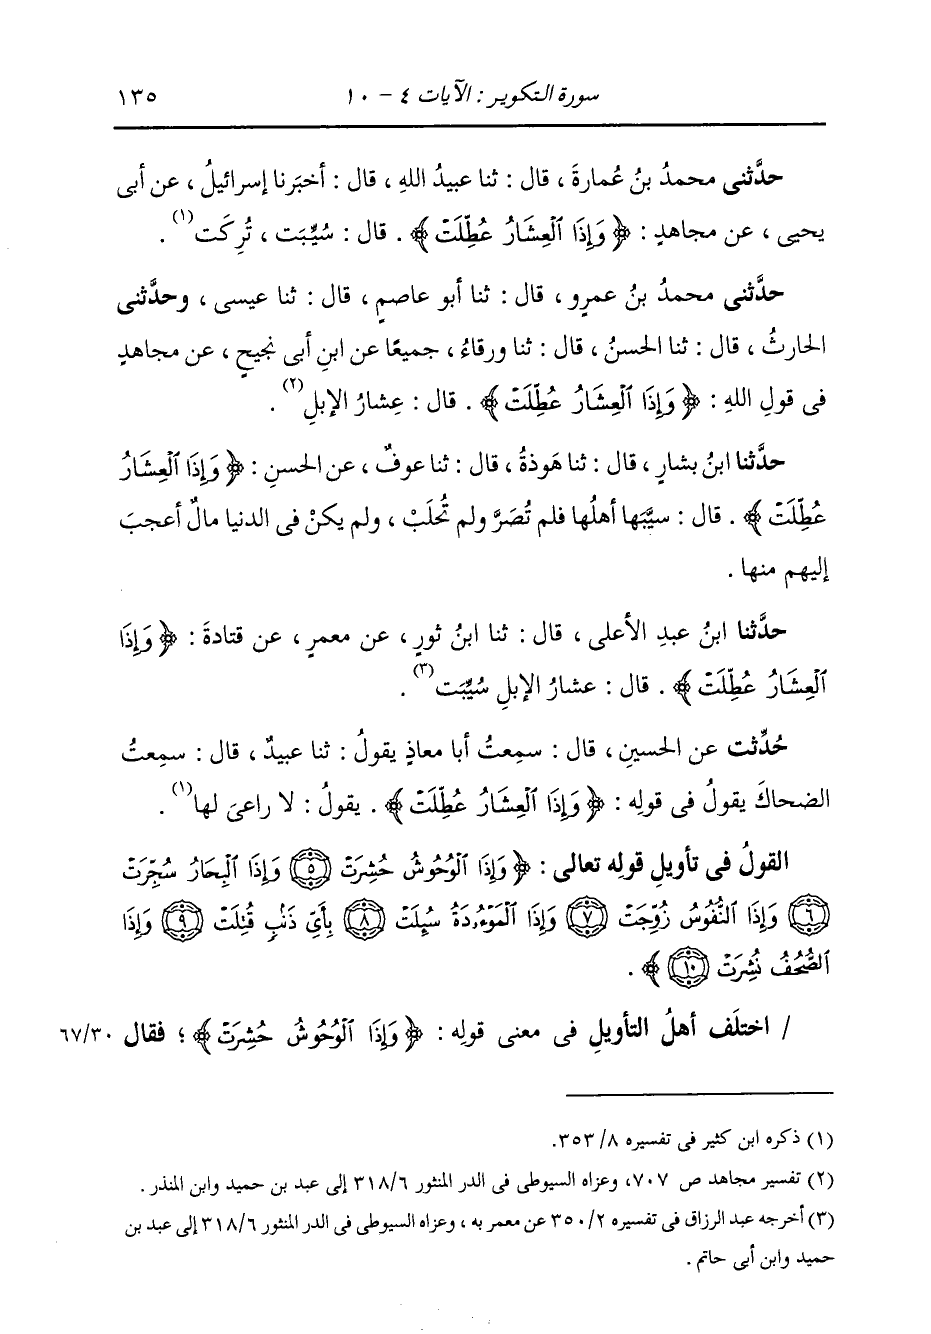 سورة التكوير : الآيات ٤ - ١٠ ١٣٥
حدَّثنى محمدُ بنُ عُمارةَ ، قال : ثنا عبيدُ اللهِ ، قال : أخبَرنا إسرائيلُ ، عن أبى
يحيى ، عن مجاهدٍ : ﴿ وَإِذَا ٱلْعِشَارُ عُطِّلَتْ ﴾ . قال : سُيِّبَت ، تُرِكَت(١) .
حدَّثنى محمدُ بنُ عمرٍو ، قال : ثنا أبو عاصمٍ ، قال : ثنا عيسى ، وحدَّثنى
الحارثُ ، قال : ثنا الحسنُ ، قال : ثنا ورقاءُ ، جميعًا عن ابنِ أبى نجيحٍ ، عن مجاهدٍ
فى قولِ اللهِ : ﴿ وَإِذَا ٱلْعِشَارُ عُطِّلَتْ ﴾ . قال : عِشارُ الإبلِ(٢) .
حدَّثنا ابنُ بشارٍ ، قال : ثنا هَوذةُ ، قال : ثنا عوفٌ ، عن الحسنِ : ﴿ وَإِذَا ٱلْعِشَارُ
عُطِّلَتْ ﴾ . قال : سيَّبَها أهلُها فلم تُصَرَّ ولم تُحلَب ، ولم يكنْ فى الدنيا مالٌ أعجبَ
إليهم منها .
حدَّثنا ابنُ عبدِ الأعلى ، قال : ثنا ابنُ ثورٍ ، عن معمرٍ ، عن قتادةَ : ﴿ وَإِذَا
ٱلْعِشَارُ عُطِّلَتْ ﴾ . قال : عشارُ الإبلِ سُيِّبَت(٣) .
حُدِّثت عن الحسينِ ، قال : سمِعتُ أبا معاذٍ يقولُ : ثنا عبيدٌ ، قال : سمِعتُ
الضحاكَ يقولُ فى قولِه : ﴿ وَإِذَا ٱلْعِشَارُ عُطِّلَتْ ﴾ . يقولُ : لا راعىَ لها(١) .
القولُ فى تأويلِ قولِه تعالى : ﴿ وَإِذَا ٱلْوُحُوشُ حُشِرَتْ ٥ وَإِذَا ٱلْبِحَارُ سُجِّرَتْ
٦ وَإِذَا ٱلنُّفُوسُ زُوِّجَتْ ٧ وَإِذَا ٱلْمَوْءُۥدَةُ سُئِلَتْ ٨ بِأَىِّ ذَنۢبٍ قُتِلَتْ ٩ وَإِذَا
ٱلصُّحُفُ نُشِرَتْ ١٠ ﴾ .
/ اختلَف أهلُ التأويلِ فى معنى قولِه : ﴿ وَإِذَا ٱلْوُحُوشُ حُشِرَتْ ﴾ ؛ فقال ٦٧/٣٠
(١) ذكره ابن كثير فى تفسيره ٣٥٣/٨.
(٢) تفسير مجاهد ص ٧٠٧، وعزاه السيوطى فى الدر المنثور ٣١٨/٦ إلى عبد بن حميد وابن المنذر .
(٣) أخرجه عبد الرزاق فى تفسيره ٣٥٠/٢ عن معمر به ، وعزاه السيوطى فى الدر المنثور ٣١٨/٦ إلى عبد بن
حميد وابن أبى حاتم .